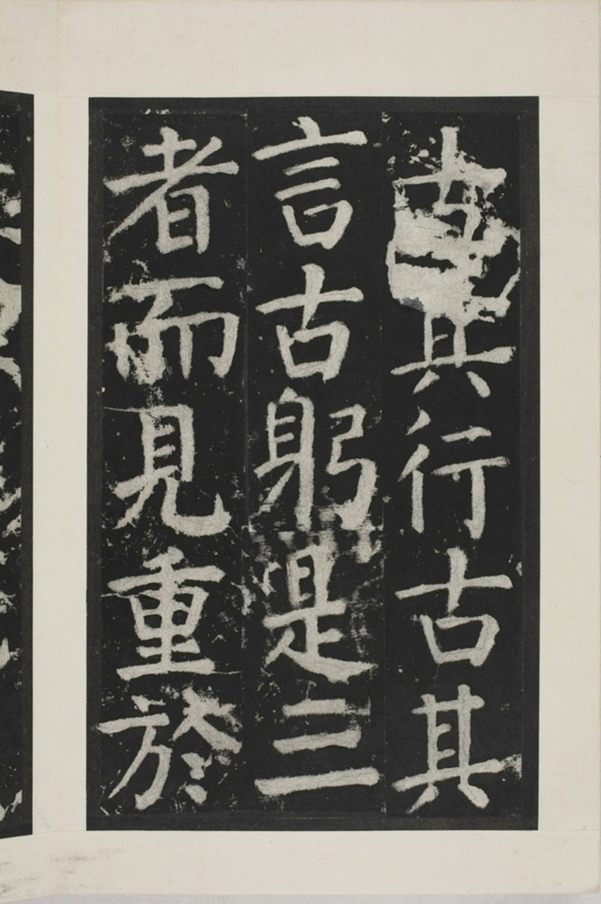 古其行古其
言古躬是三
者而見重於